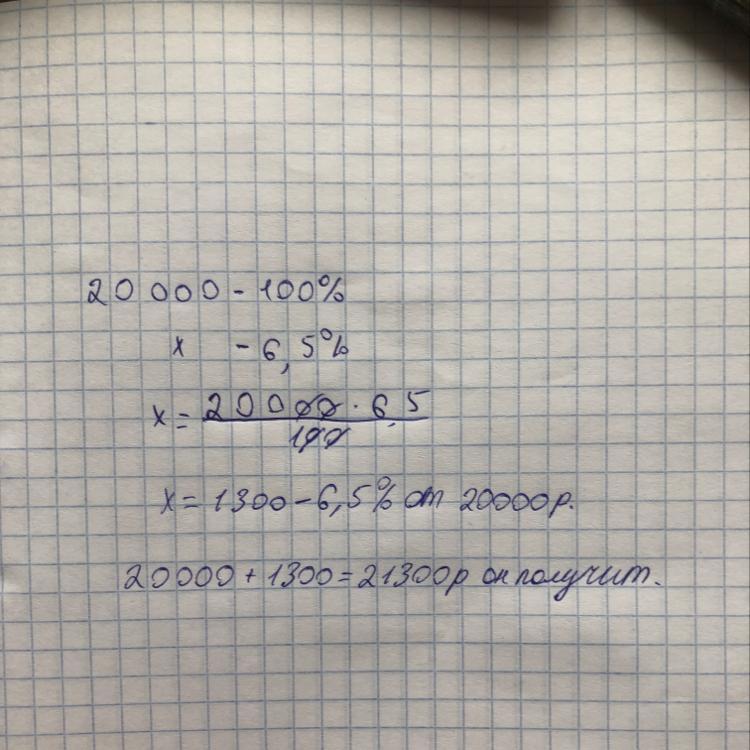 20 000 - 100%
x - 6,5%
x = 20000 · 6,5
100
x = 1300 - 6,5% от 20000р.
20000 + 1300 = 21300р он получит.